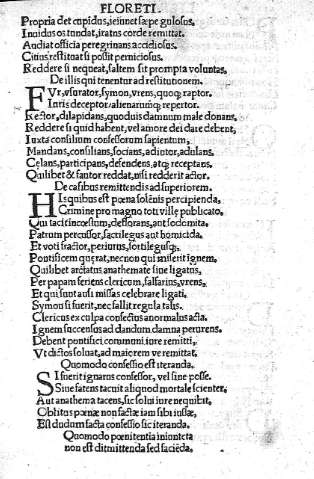 FLORETI.
Propria det cupidus, ieiunet sæpe gulosus,
Inuidus ostundat, iratns corde remittat.
Audiat officia peregrinans accidiosus.
Citius restituat si possit perniciosus.
Reddere si nequeat, saltem sit prompta voluntas.
De illis qui tenentur ad restitutionem.
FVr, vsurator, symon, vrens, quoq; raptor.
In iris deceptor, alienarumq; repertor.
Rector, dilapidans, quoduis damnum male donans,
Reddere si quid habent, vel amore dei dare debent,
Iuxta consilium confessorum sapientum,
Mandans, consilians, socians, adiutor, adulans,
Celans, participans, defendens, atq; receptans.
Quilibet & fautor reddat, nisi redderit actor.
De casibus remittendis ad superiorem.
HIs quibus est pœna solēnis percipienda,
Crimine pro magno toti villę publicato,
Qui tacit incœstum, deflorans, aut sodomita.
Patrum percussor, sacrilegus aut homicida.
Et voti fractor, periurus, sortilegusq;.
Pontificem quęrat, nec non qui miserit ignem.
Quilibet arctatus anathemate siue ligatus,
Per papam feriens clericum, falsarius, vrens,
Et qui sunt ausi missas celebrare ligati.
Symon si fuerit, nec fallit regula talis.
Clericus ex culpa confectus anormalus acta.
Ignem succensus ad dandum damna perurens.
Debent pontifici communi iure remitti,
Vt dictos soluat, ad maiorem ve remittat.
Quomodo confessio est iteranda.
SI fuerit ignarus confessor, vel sine posse.
Siue fatens tacuit aliquod mortale scienter.
Aut anathema tacens, sic solui iure nequibit,
Oblitus pœnæ non factæ iam sibi iussæ,
Est dudum facta confessio sic iteranda.
Quomodo pœnitentia iniuncta
non est dimittenda sed faciēda.